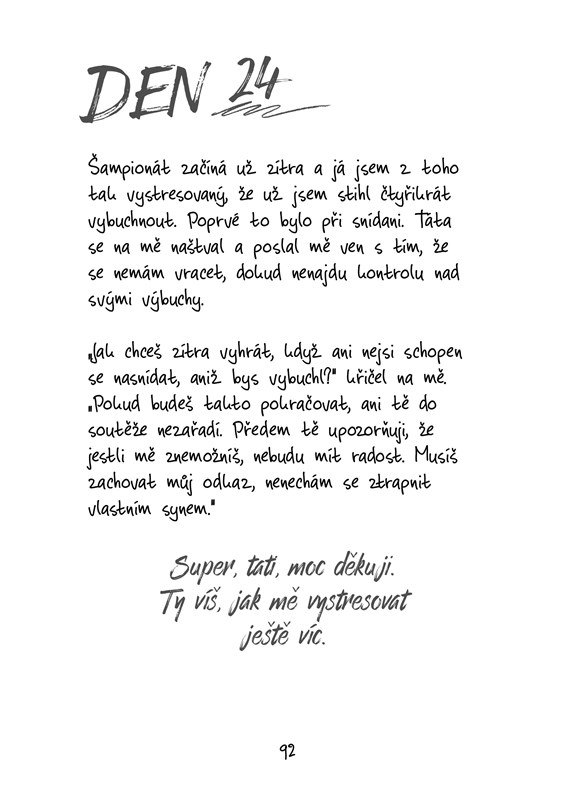 DEN 24
Šampionát začíná už zítra a já jsem z toho
tak vystresovaný, že už jsem stihl čtyřikrát
vybuchnout. Poprvé to bylo při snídani. Táta
se na mě naštval a poslal mě ven s tím, že
se nemám vracet, dokud nenajdu kontrolu nad
svými výbuchy.
„Jak chceš zítra vyhrát, když ani nejsi schopen
se nasnídat, aniž bys vybuchl?" křičel na mě.
„Pokud budeš takto pokračovat, ani tě do
soutěže nezařadí. Předem tě upozorňuji, že
jestli mě znemožníš, nebudu mít radost. Musíš
zachovat můj odkaz, nenechám se ztrapnit
vlastním synem."
Super, tati, moc děkuji.
Ty víš, jak mě vystresovat
ještě víc.
92